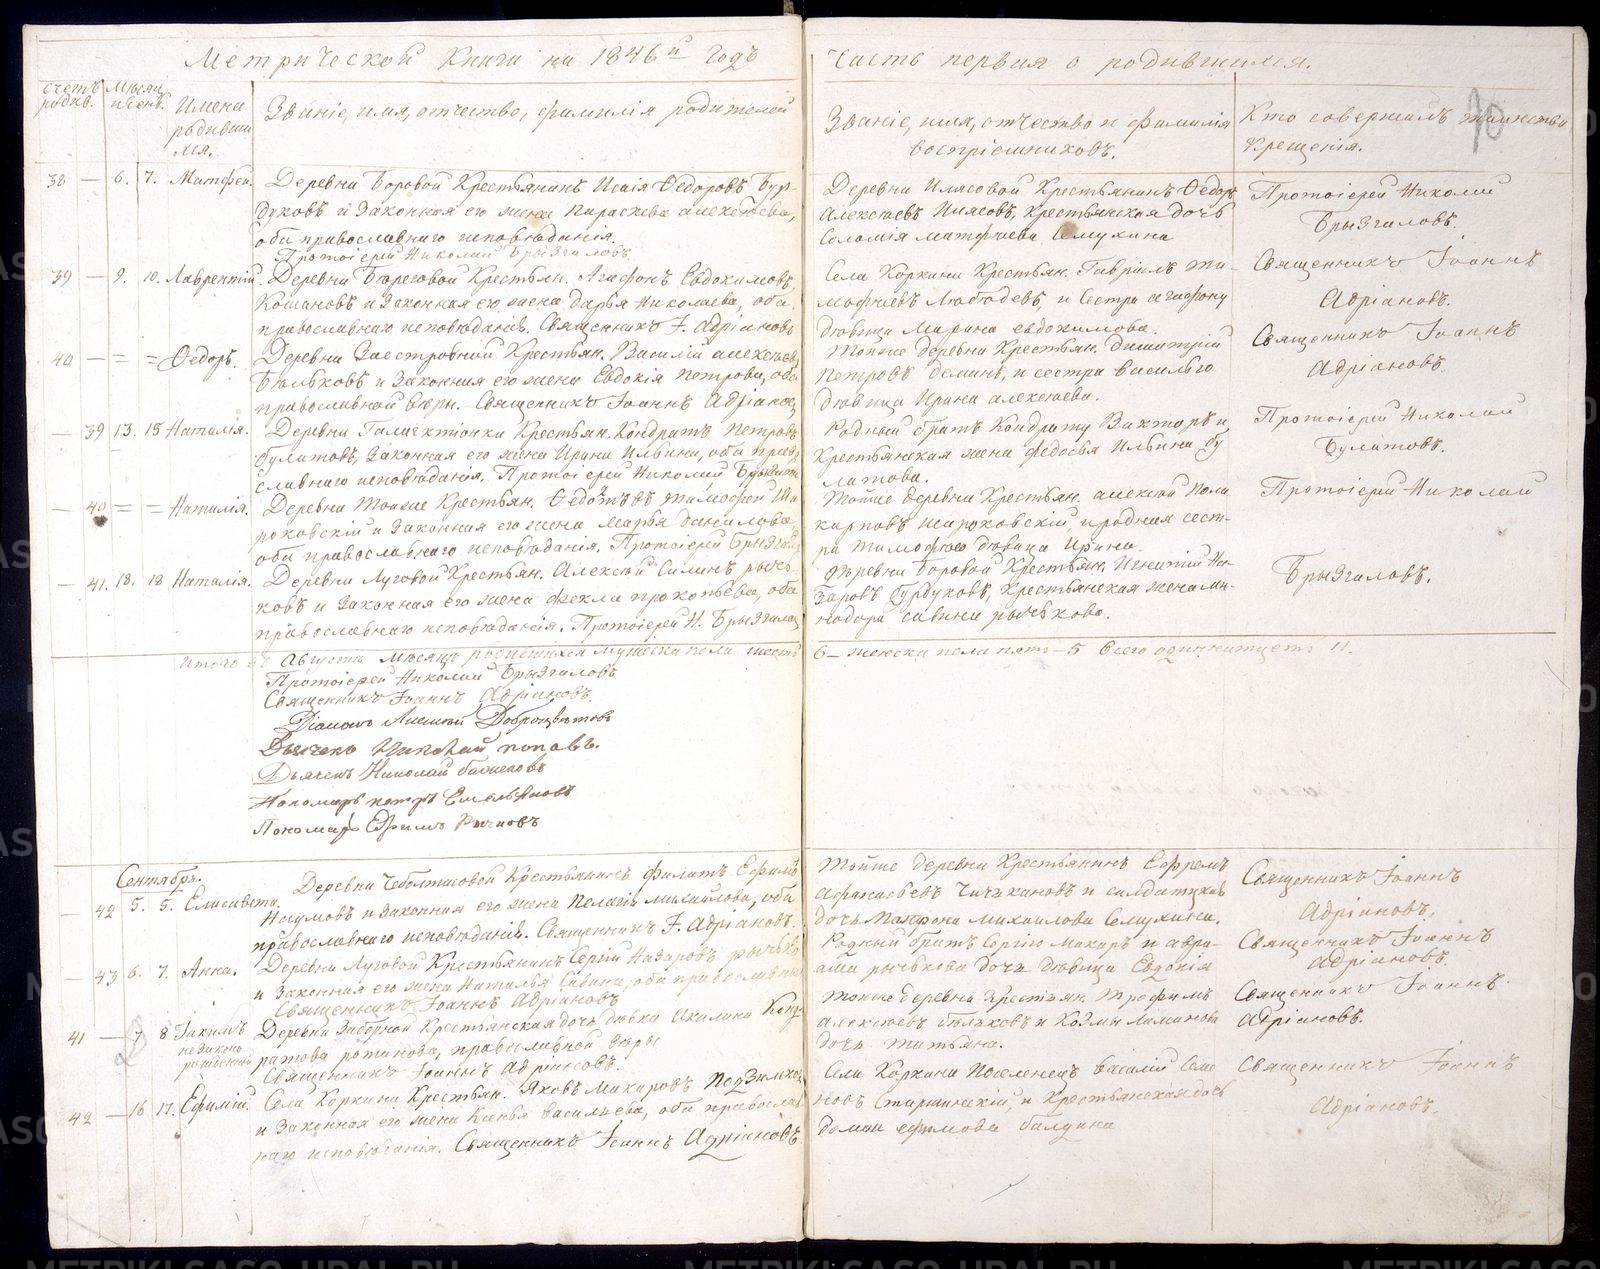 Метрической Книги на 1846й Годъ
Часть первая о родившихся.
Счетъ родив.
Месяц и день.
Имена
родивши
хся.
Званіе, имя, отчество, фамилія родителей
Званіе, имя, отчество и фамилія
воспріемниковъ.
Кто совершалъ таинство
Крещенія.
70
38 — 6. 7. Матфей. Деревни Боровой Крестьянинъ Исаія Федоровъ Бур-
дуковъ и Законная его жена Параскева алексѣева,
оба православнаго исповѣданія.
Протоіерей Николай Брызгаловъ
Деревни Илясовой Крестьянинъ Федоръ
Алексѣевъ Илясовъ, крестьянская дочь
Соломія Матфиева Семухина
Протоіерей Николай
Брызгаловъ.
39 — 9. 10. Лаврентій. Деревни Береговой Крестьян. Агафонъ Евдокимовъ
Кошановъ и Законная его жена дарья Николаева, оба
православнаго исповѣданія. Священникъ І. Адріановъ
Села Коркина Крестьян. Гавріилъ Ти-
мофѣевъ и Сестра агафону
дѣвица Марина евдокимова.
Священникъ Іоаннъ
Адріановъ.
40 — = = Федоръ. Деревни Заостровной Крестьян. Василій алексѣевъ
Бѣльковъ и Законная его жена Евдокія петрова, оба
православной вѣры. Священникъ Іоаннъ Адріановъ
Тойже деревни Крестьян. Димитрій
петровъ деминъ, и сестра василью
дѣвица Ирина алексѣева.
Священникъ Іоаннъ
Адріановъ.
— 39 13. 15 Наталія. Деревни Крестьян. Кондратъ петровъ
булатовъ, Законная его жена Ирина Ильина, оба право
славнаго исповѣданія. Протоіерей Николай Брызгалов
Родный братъ Кондрату Викторъ и
крестьянская жена федосья Ильина бу
латова.
Протоіерей Николай
Булатовъ.
— 40 = = Наталія. Деревни Тойже Крестьян. тимофей Ши
роковскій и Законная его жена марья данилова
оба православнаго исповѣданія. Протоіерей Брызгалов
Тойже деревни Крестьян. алексѣй поли
карповъ широковскій, и родная сест-
ра тимофею дѣвица Ирина.
Протоіерей Николай
— 41. 18. 18 Наталія. Деревни Луговой Крестьян. Алексѣй Силинъ рыч-
ковъ и Законная его жена фекла прокопьева, оба
православнаго исповѣданія. Протоіерей Н. Брызгалов
деревни Боровой Крестьян. Игнатій На-
заровъ бурдуковъ, крестьянская жена ми-
надора савина рычкова.
Брызгаловъ.
Итого въ Августѣ мѣсяцѣ родившихся мужеска пола шесть
6 — женска пола пять — 5 всего одиннатцеть 11.
Протоіерей Николай Брызгаловъ
Священникъ Іоаннъ Адріановъ.
Діаконъ Доброцвѣтовъ
Дьячекъ Николай поповъ.
Дьячекъ Николай
Пономарь петръ Емельяновъ
Пономарь Ефимъ
Сентябрь.
— 42 5. 5. Елисавета. Деревни Крестьянинъ филатъ Ефимовъ
Наумовъ и Законная его жена Пелагія михайлова, оба
православнаго исповѣданія. Священникъ І. Адріановъ.
Тойже деревни Крестьянинъ Ефремъ
афанасьевъ и салдатская
дочь михайлова Семухина.
Священникъ Іоаннъ
Адріановъ.
— 43 6. 7. Анна. Деревни Луговой Крестьянинъ Сергій Назаровъ рычковъ
и Законная его жена Наталья Савина, оба православны
Священникъ Іоаннъ Адріановъ
Родный братъ Сергію Макаръ и авра-
ама рычкова дочь дѣвица Евдокія
Священникъ Іоаннъ
Адріановъ.
41 — 7 8 Іакимъ
незаконо
рожденный
Деревни Заборной Крестьянская дочь дѣвка Акилина Конд-
ратова православной вѣры
Священникъ Іоаннъ Адріановъ.
Тойже деревни Крестьян. Трофимъ
алексѣевъ бѣльковъ и Козмы
дочь татьяна.
Священникъ Іоаннъ
Адріановъ.
42 — 16 17. Ефимій. Села Коркина Крестьян. Яковъ Макаровъ
и Законная его жена Ксенья васильева, оба православ
наго исповѣданія. Священникъ Іоаннъ Адріановъ.
Села Коркина Поселенецъ василій Семе
новъ и Крестьянская дочь
ефимова балдина
Священникъ Іоаннъ
Адріановъ.
METRIKI.GASO-URAL.RU
METRIKI.GASO-URAL.RU